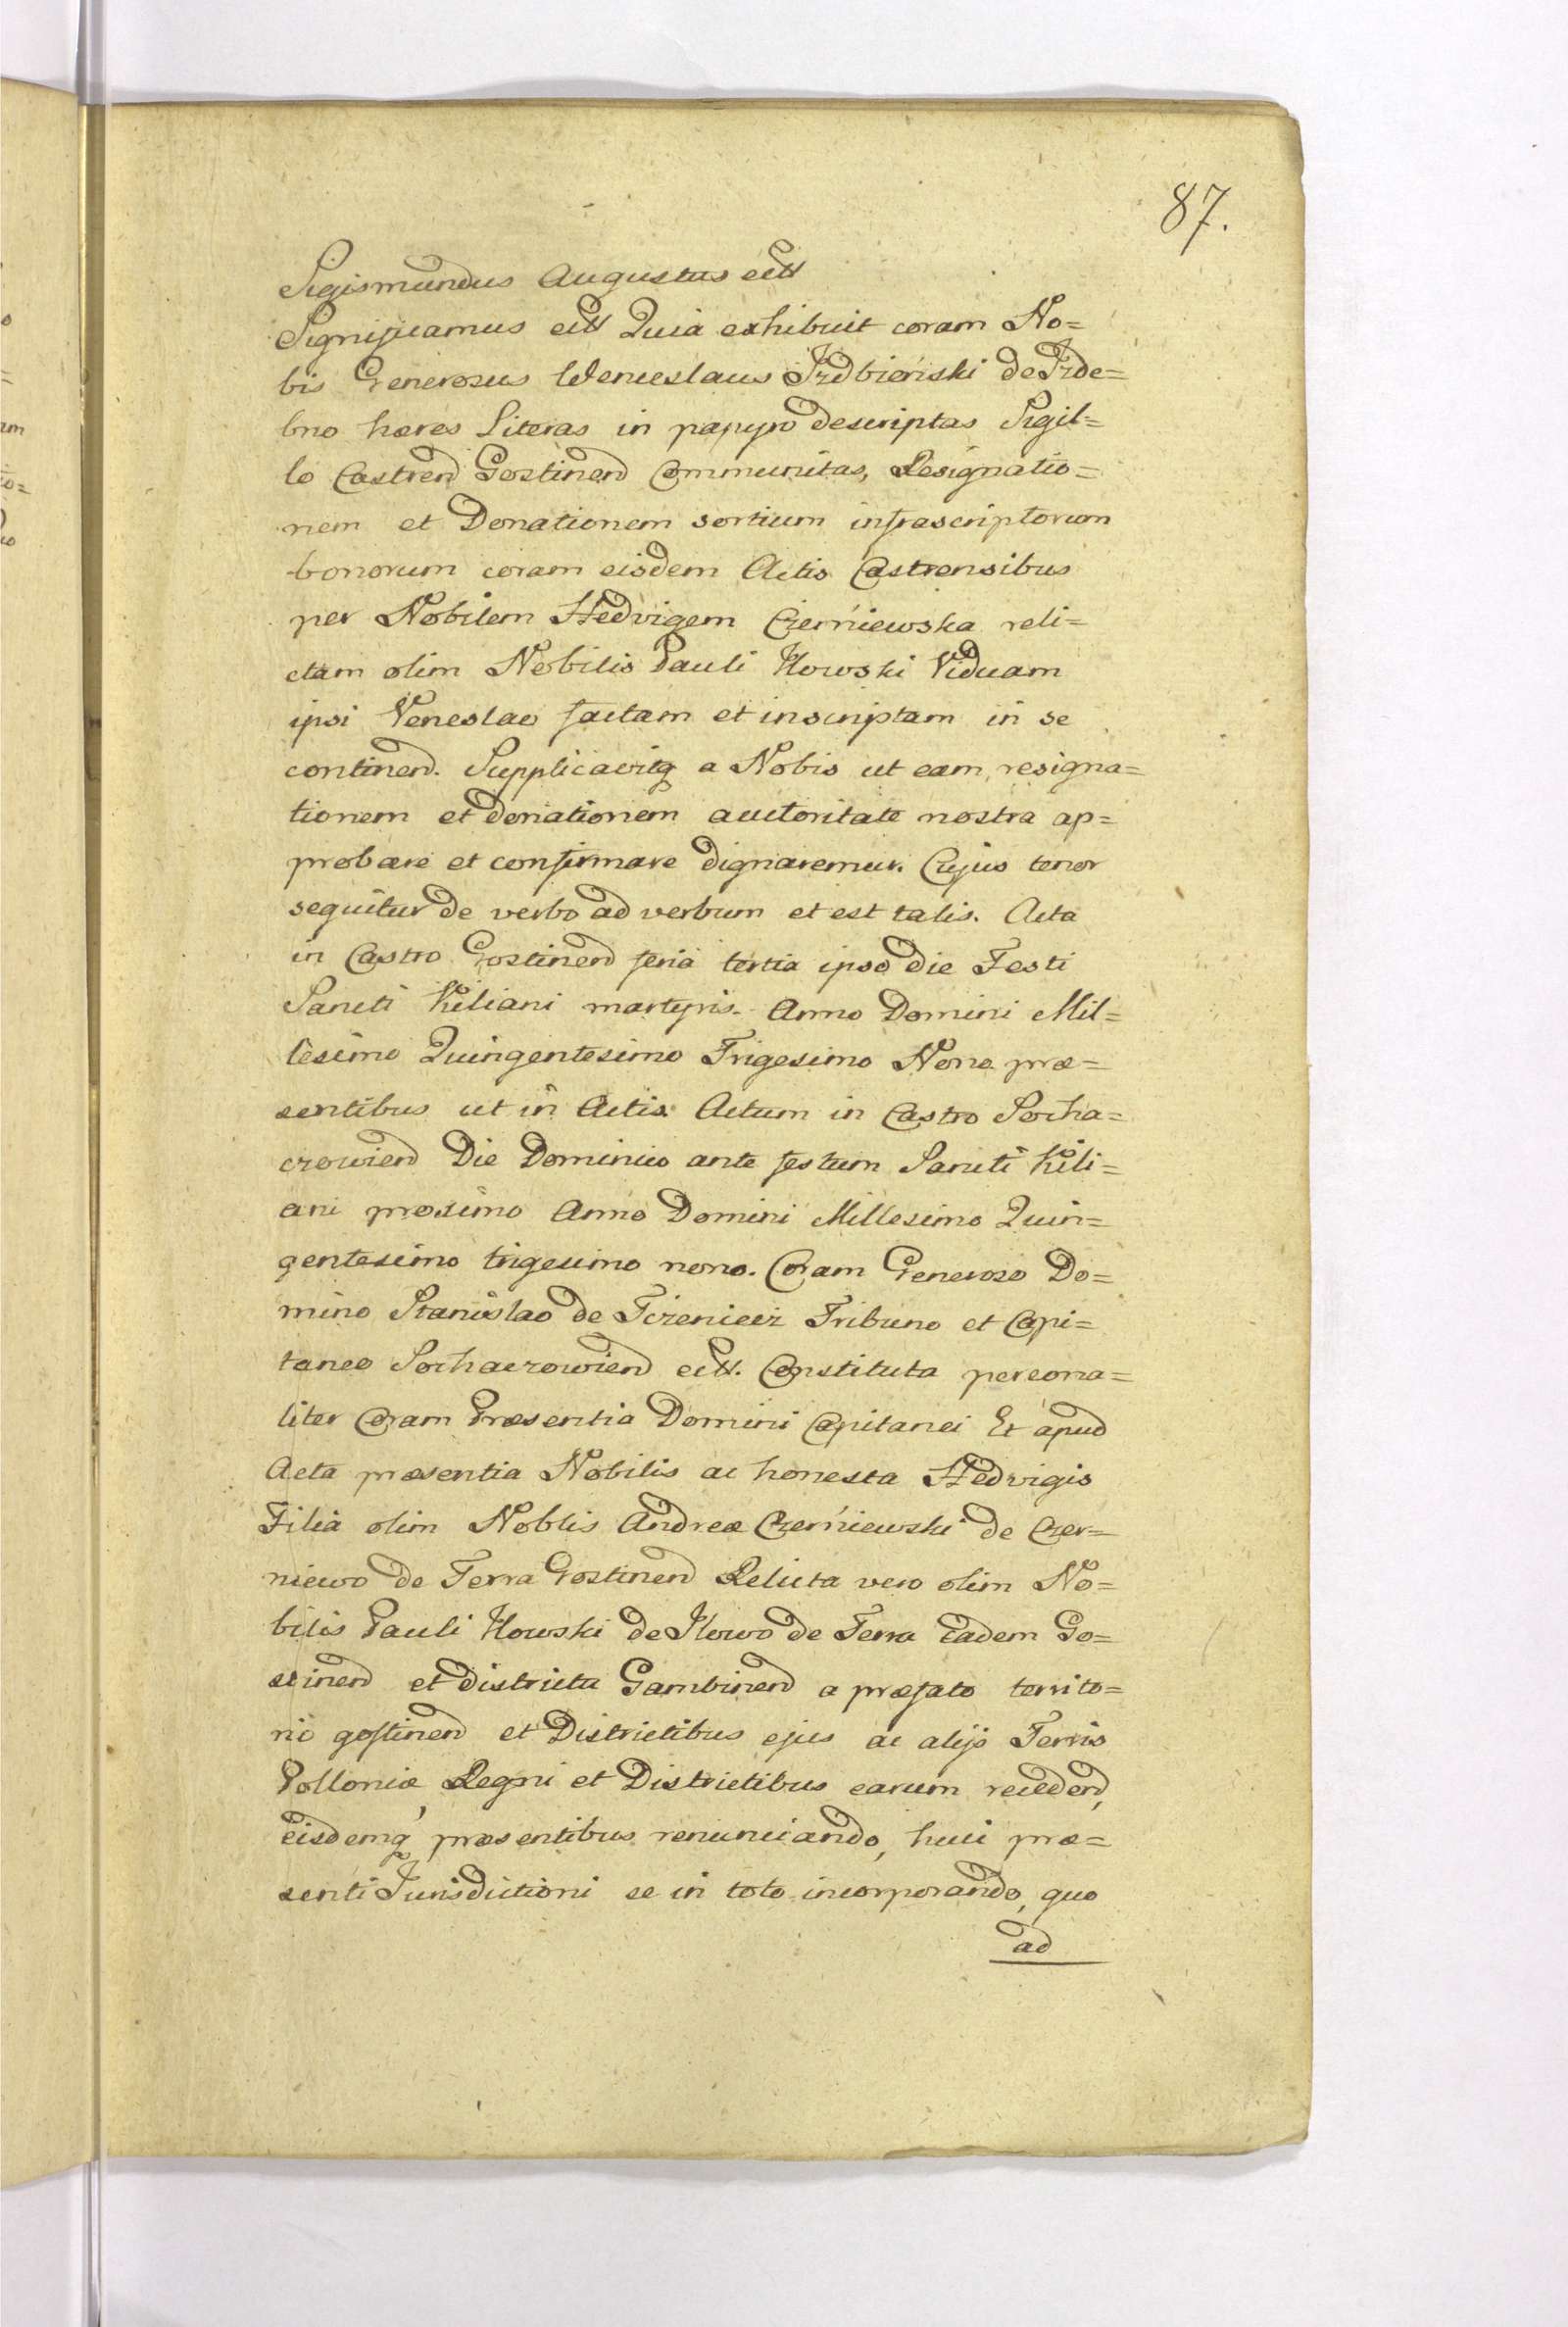 87.
Sigismundus Augustus ectt
Significamus ectt Quia exhibuit coram No=
bis Generosus Wenceslaus Izdbieński de Izde=
bno hæres Literas in papyro descriptas Sigil=
lo Castrend Gostinend Communitas, Resignatio=
nem et Donationem sortium infrascriptorum
bonorum coram eisdem Actis Castrensibus
per Nobilem Hedvigem Czerniewska reli=
ctam olim Nobilis Pauli Ilowski Viduam
ipsi Veneslao factam et inscriptam in se
continend. Supplicavitq a Nobis ut eam, resigna=
tionem et donationem auctoritate nostra ap=
probare et confirmare dignaremur. Cujus tenor
sequitur de verbo ad verbum et est talis. Acta
in Castro Gostinend feria tertia ipso die Festi
Sancti Kiliani martyris. Anno Domini Mil=
lesimo Quingentesimo Trigesimo Nono præ=
sentibus ut in Actis. Actum in Castro Socha=
czowiend Die Dominico ante festum Sancti Kili=
ani proximo Anno Domini Millesimo Quin=
gentesimo trigesimo nono. Coram Generoso Do=
mino Stanislao de Tczeniecz Tribuno et Capi=
taneo Sochaczowiend ectt. Constituta persona=
liter Coram Præsentia Domini Capitanei Et apud
Acta præsentia Nobilis ac honesta Hedvigis
Filia olim Noblis Andreæ Czerniewski de Czer=
niewo de Terra Gostinend Relicta vero olim No=
bilis Pauli Ilowski de Ilowo de Terra Eadem Go=
stinend et districtu Gambinend a præfato territo=
rio gostinend et Districtibus ejus ac alijs Terris
Polloniæ Regni et Districtibus earum recedend,
eisdemq præsentibus renunciando, huic præ=
senti Jurisdictioni se in toto incorporando, quo
ad